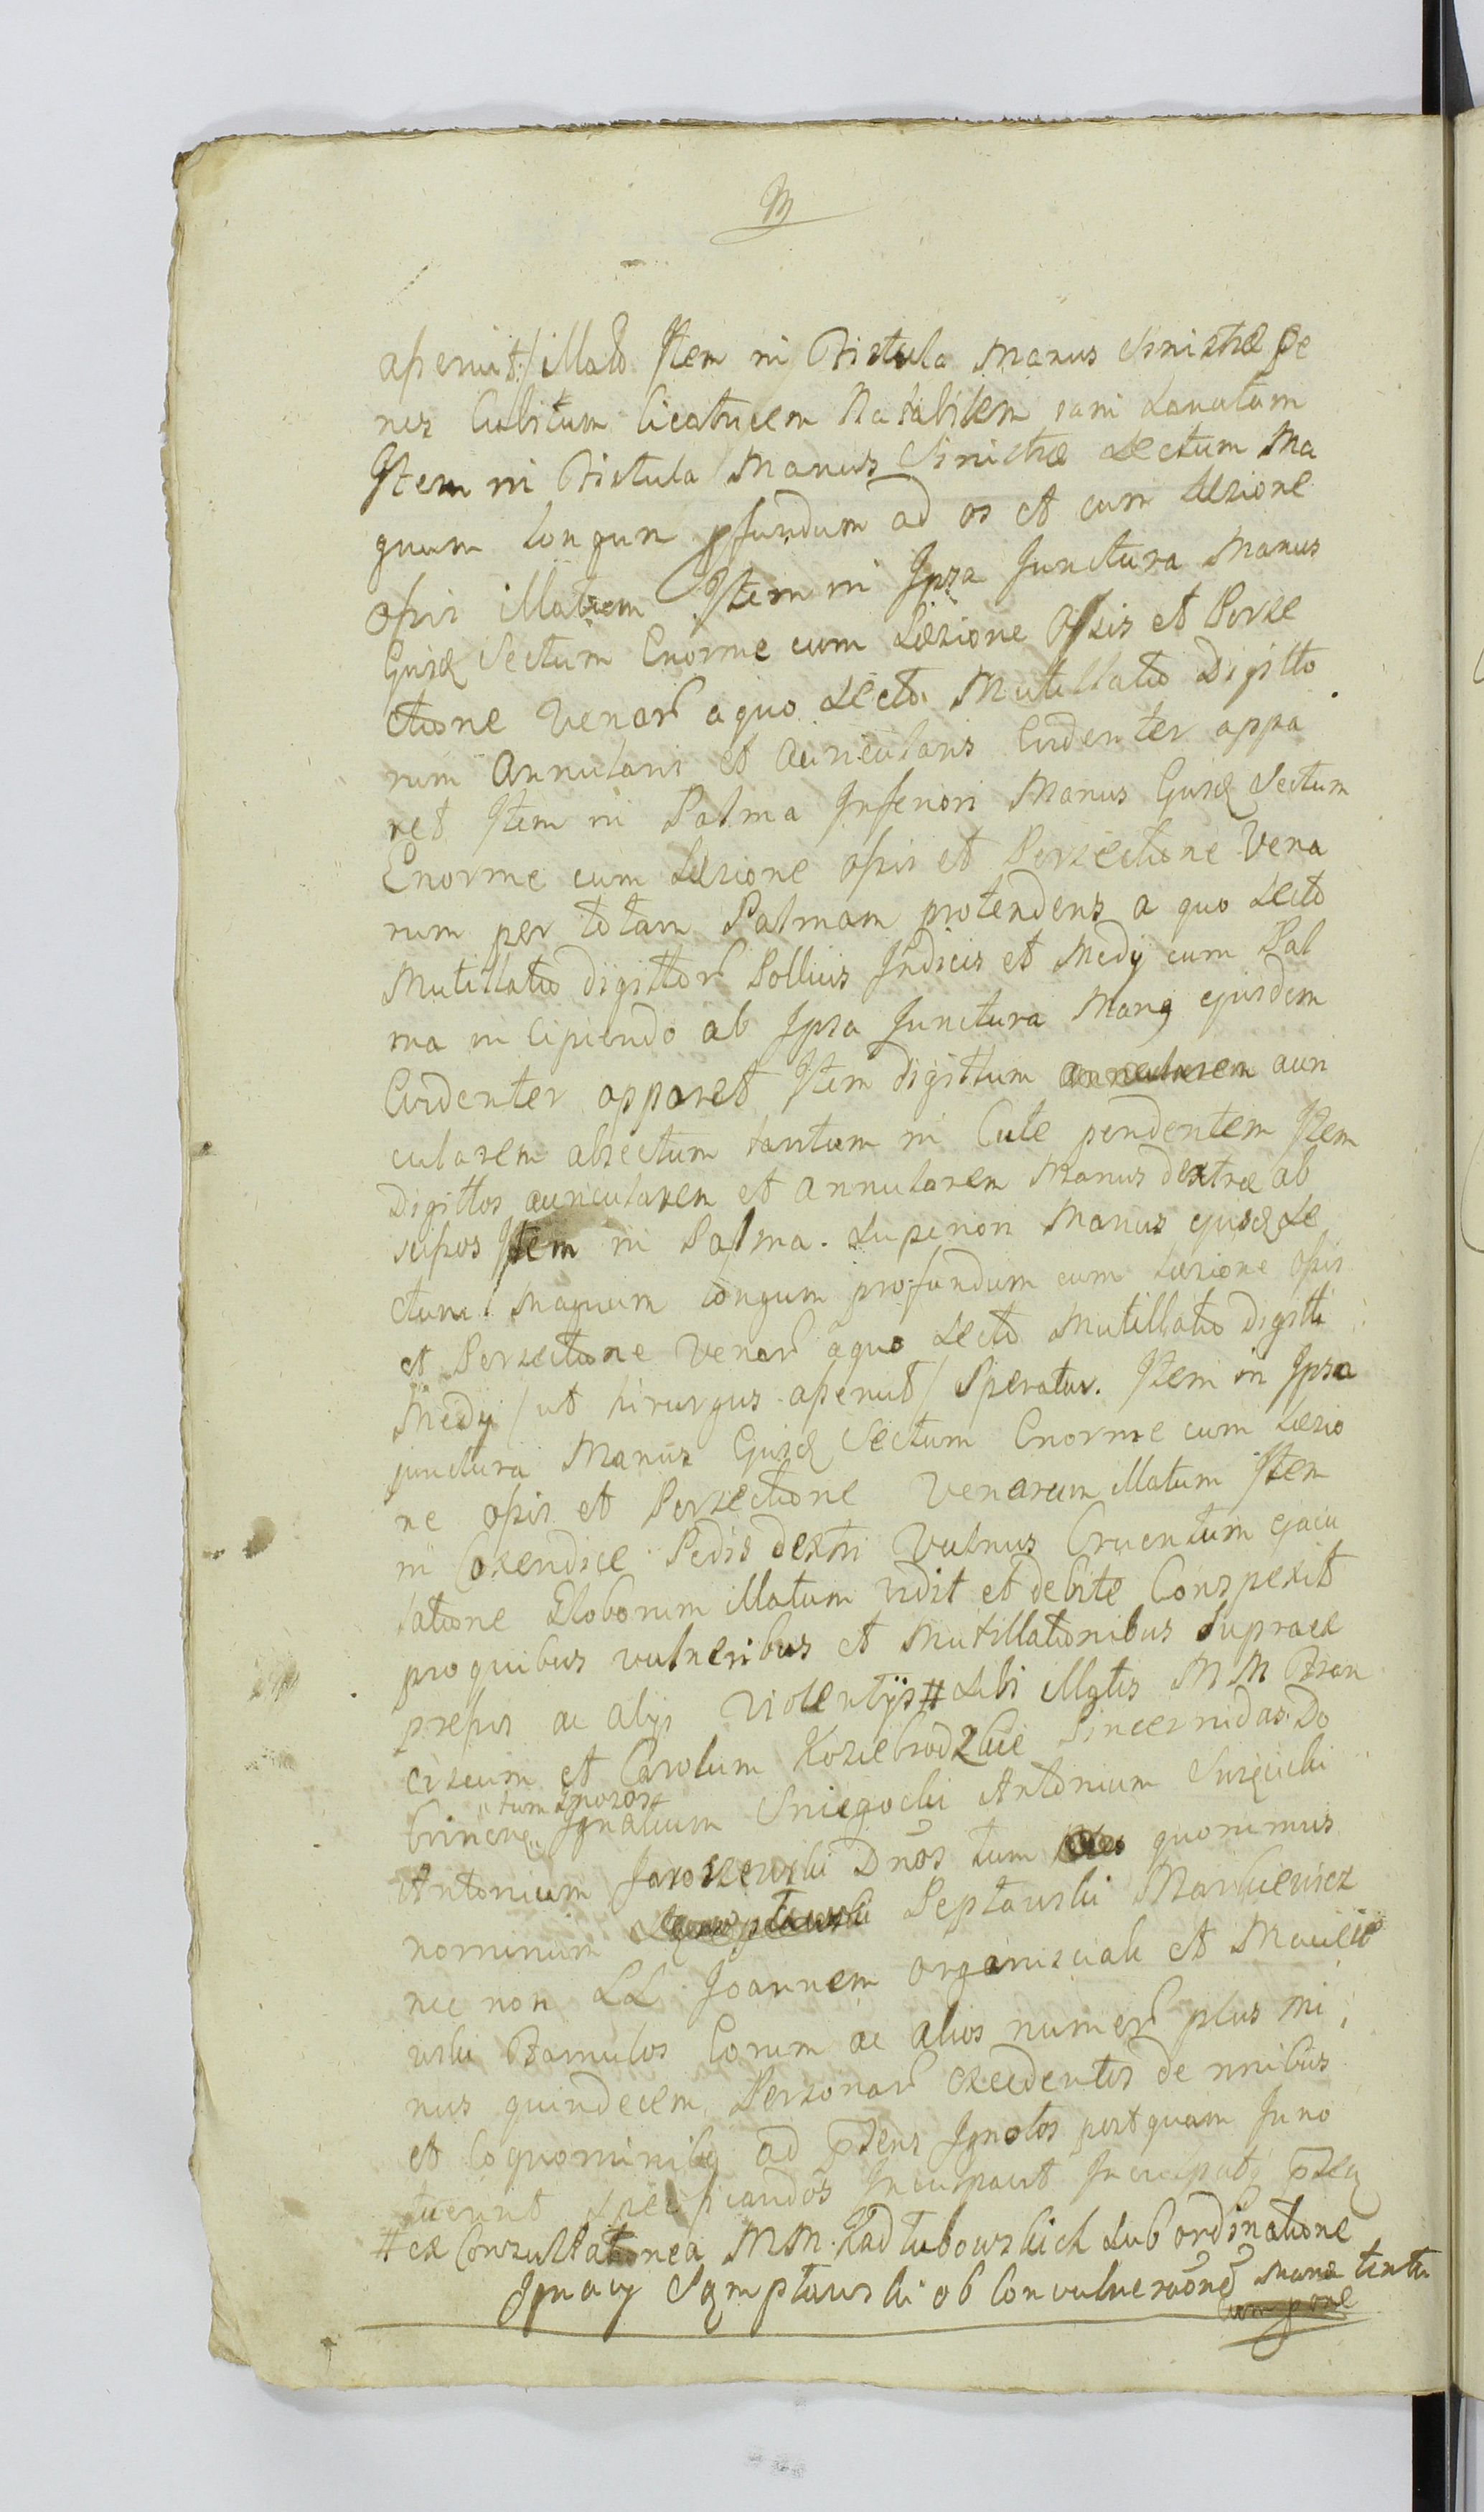 M
aperuit:/ illato Item in Fistula Manus Sinistræ pe
nes Cubitum Cicatricem Notabilem iam Sanatam
Item in Fistula Manus Sinistræ Sectum Ma
gnum longum pfundum ad os et cum Læsione
ossis illatum Item in Ipsa Junctura Manus
Ejusd Sectum Enorme cum Læsione Ossis et Perse
ctione Venar a quo Secto Mutillatio Digitto
rum Annularis et Auricularis Evidenter appa
ret Item in Palma Inferiori Manus Ejusd Sectum
Enorme cum Læsione ossis et Persectione Vena
rum per totam Palmam protendens a quo Secto
Mutillatio digittor Pollicis Indicis et Medij cum Pal
ma incipiendo ab Ipsa Junctura Manq ejusdem
Evidenter apparet Item digittum auri
cularem absectum tantum in Cute pendentem Item
Digittos auricularem et Annularem Manus dextræ ab
scisos Item in Palma Superiori Manus ejusd Se
ctum Magnum longum profundum cum Læsione Ossis
et Persectione Venar a quo Secto Mutillatio digitti
Medij / ut hirurgus aperuit / Speratur. Item in Ipsa
junctura Manus Ejusd Sectum Enorme cum Læsio
ne ossis et Persectione Venarum illatum Item
in Coxendice Pedis dextri Vulnus Cruentum ejacu
latione Globorum illatum vidit et debite Conspexit
pro quibus vulneribus et Mutillationibus Supra ex
pressis ac alijs violentijs # Sibi illatis MM Fran
ciscum et Carolum Koziebrodzkie Pincernidas Do
brinen tum Gnosos Ignatium Sniegocki Antonium Suięcicki
Antonium Jaroszewski Dnos tum quorum
nominum Septawski Markiewicz
nec non LL Joannem Organisciak et Maciejo
wski Famulos Eorum ac alios numer plus mi
nus quindecem Personar excedentes de nnibus
et Cognominibq ad psens Ignotos postquam Inno
tuerint Specificandos Inculpavit Inculpatq psen
# ex Consultatione MM. Kadlubowskich Sub ordinatione
Ignacy Sęmptawski ob Convulneraone Manu tentu